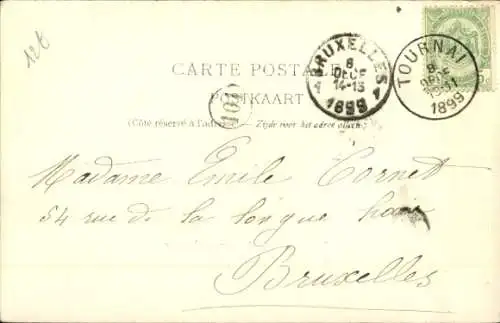 12 6
CARTE POSTALE
POSTKAART
(Côté réservé à l'adresse) — Zijde voor het adres alleen.
BRUXELLES
8
DECE
14-15
1 1
1899
TOURNAI
8
1899
101
Madame Emile Cornet
54 rue de la longue haie
Bruxelles